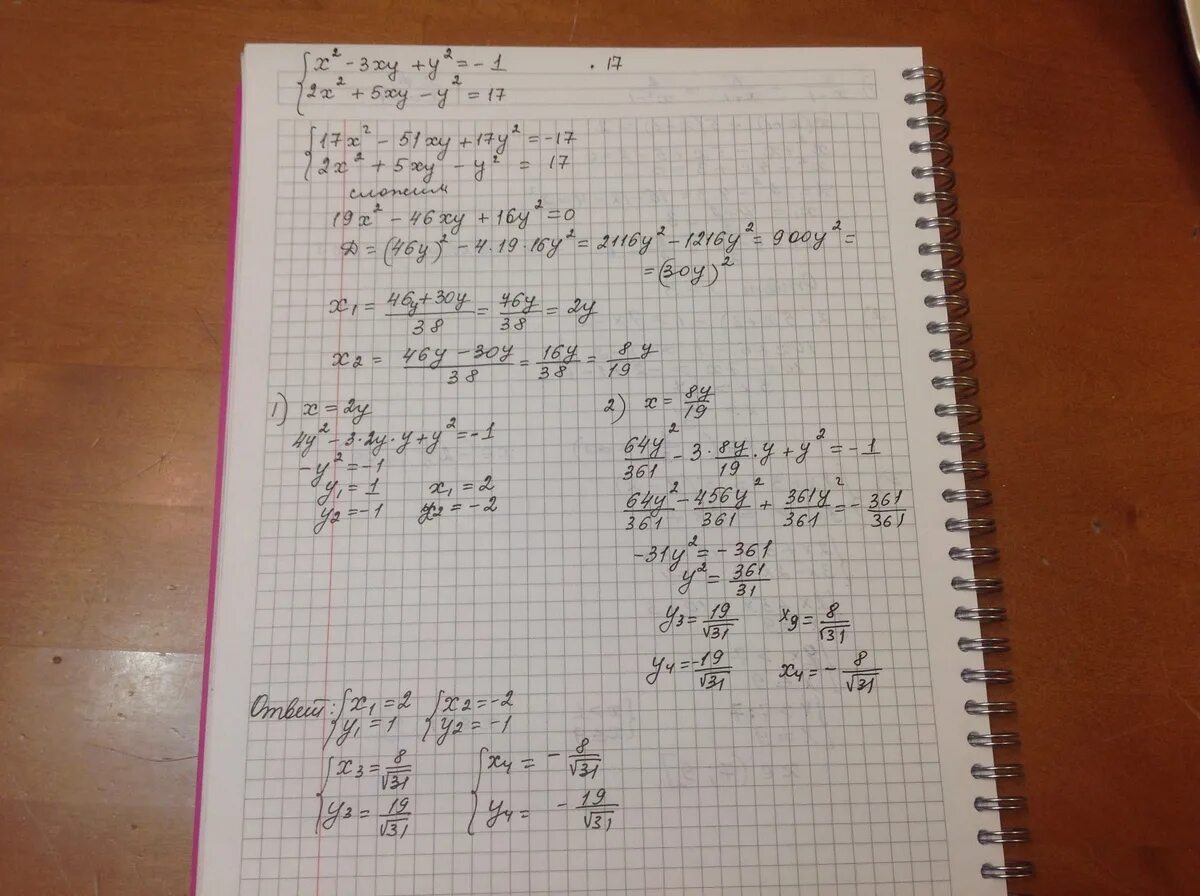 { x² - 3xy + y² = -1 · 17
{ 2x² + 5xy - y² = 17
{ 17x² - 51xy + 17y² = -17
{ 2x² + 5xy - y² = 17
сложим
19x² - 46xy + 16y² = 0
Д = (46y)² - 4·19·16y² = 2116y² - 1216y² = 900y² =
= (30y)²
x₁ = (46y + 30y)/38 = 76y/38 = 2y
x₂ = (46y - 30y)/38 = 16y/38 = 8y/19
1) x = 2y
4y² - 3·2y·y + y² = -1
-y² = -1
y₁ = 1 x₁ = 2
y₂ = -1 y₂ = -2
2) x = 8y/19
64y²/361 - 3·8y/19·y + y² = -1
64y²/361 - 456y²/361 + 361y²/361 = -361/361
-31y² = -361
y² = 361/31
y₃ = 19/√31 x₃ = 8/√31
y₄ = -19/√31 x₄ = -8/√31
Ответ: { x₁ = 2 { x₂ = -2
{ y₁ = 1 { y₂ = -1
{ x₃ = 8/√31 { x₄ = -8/√31
{ y₃ = 19/√31 { y₄ = -19/√31